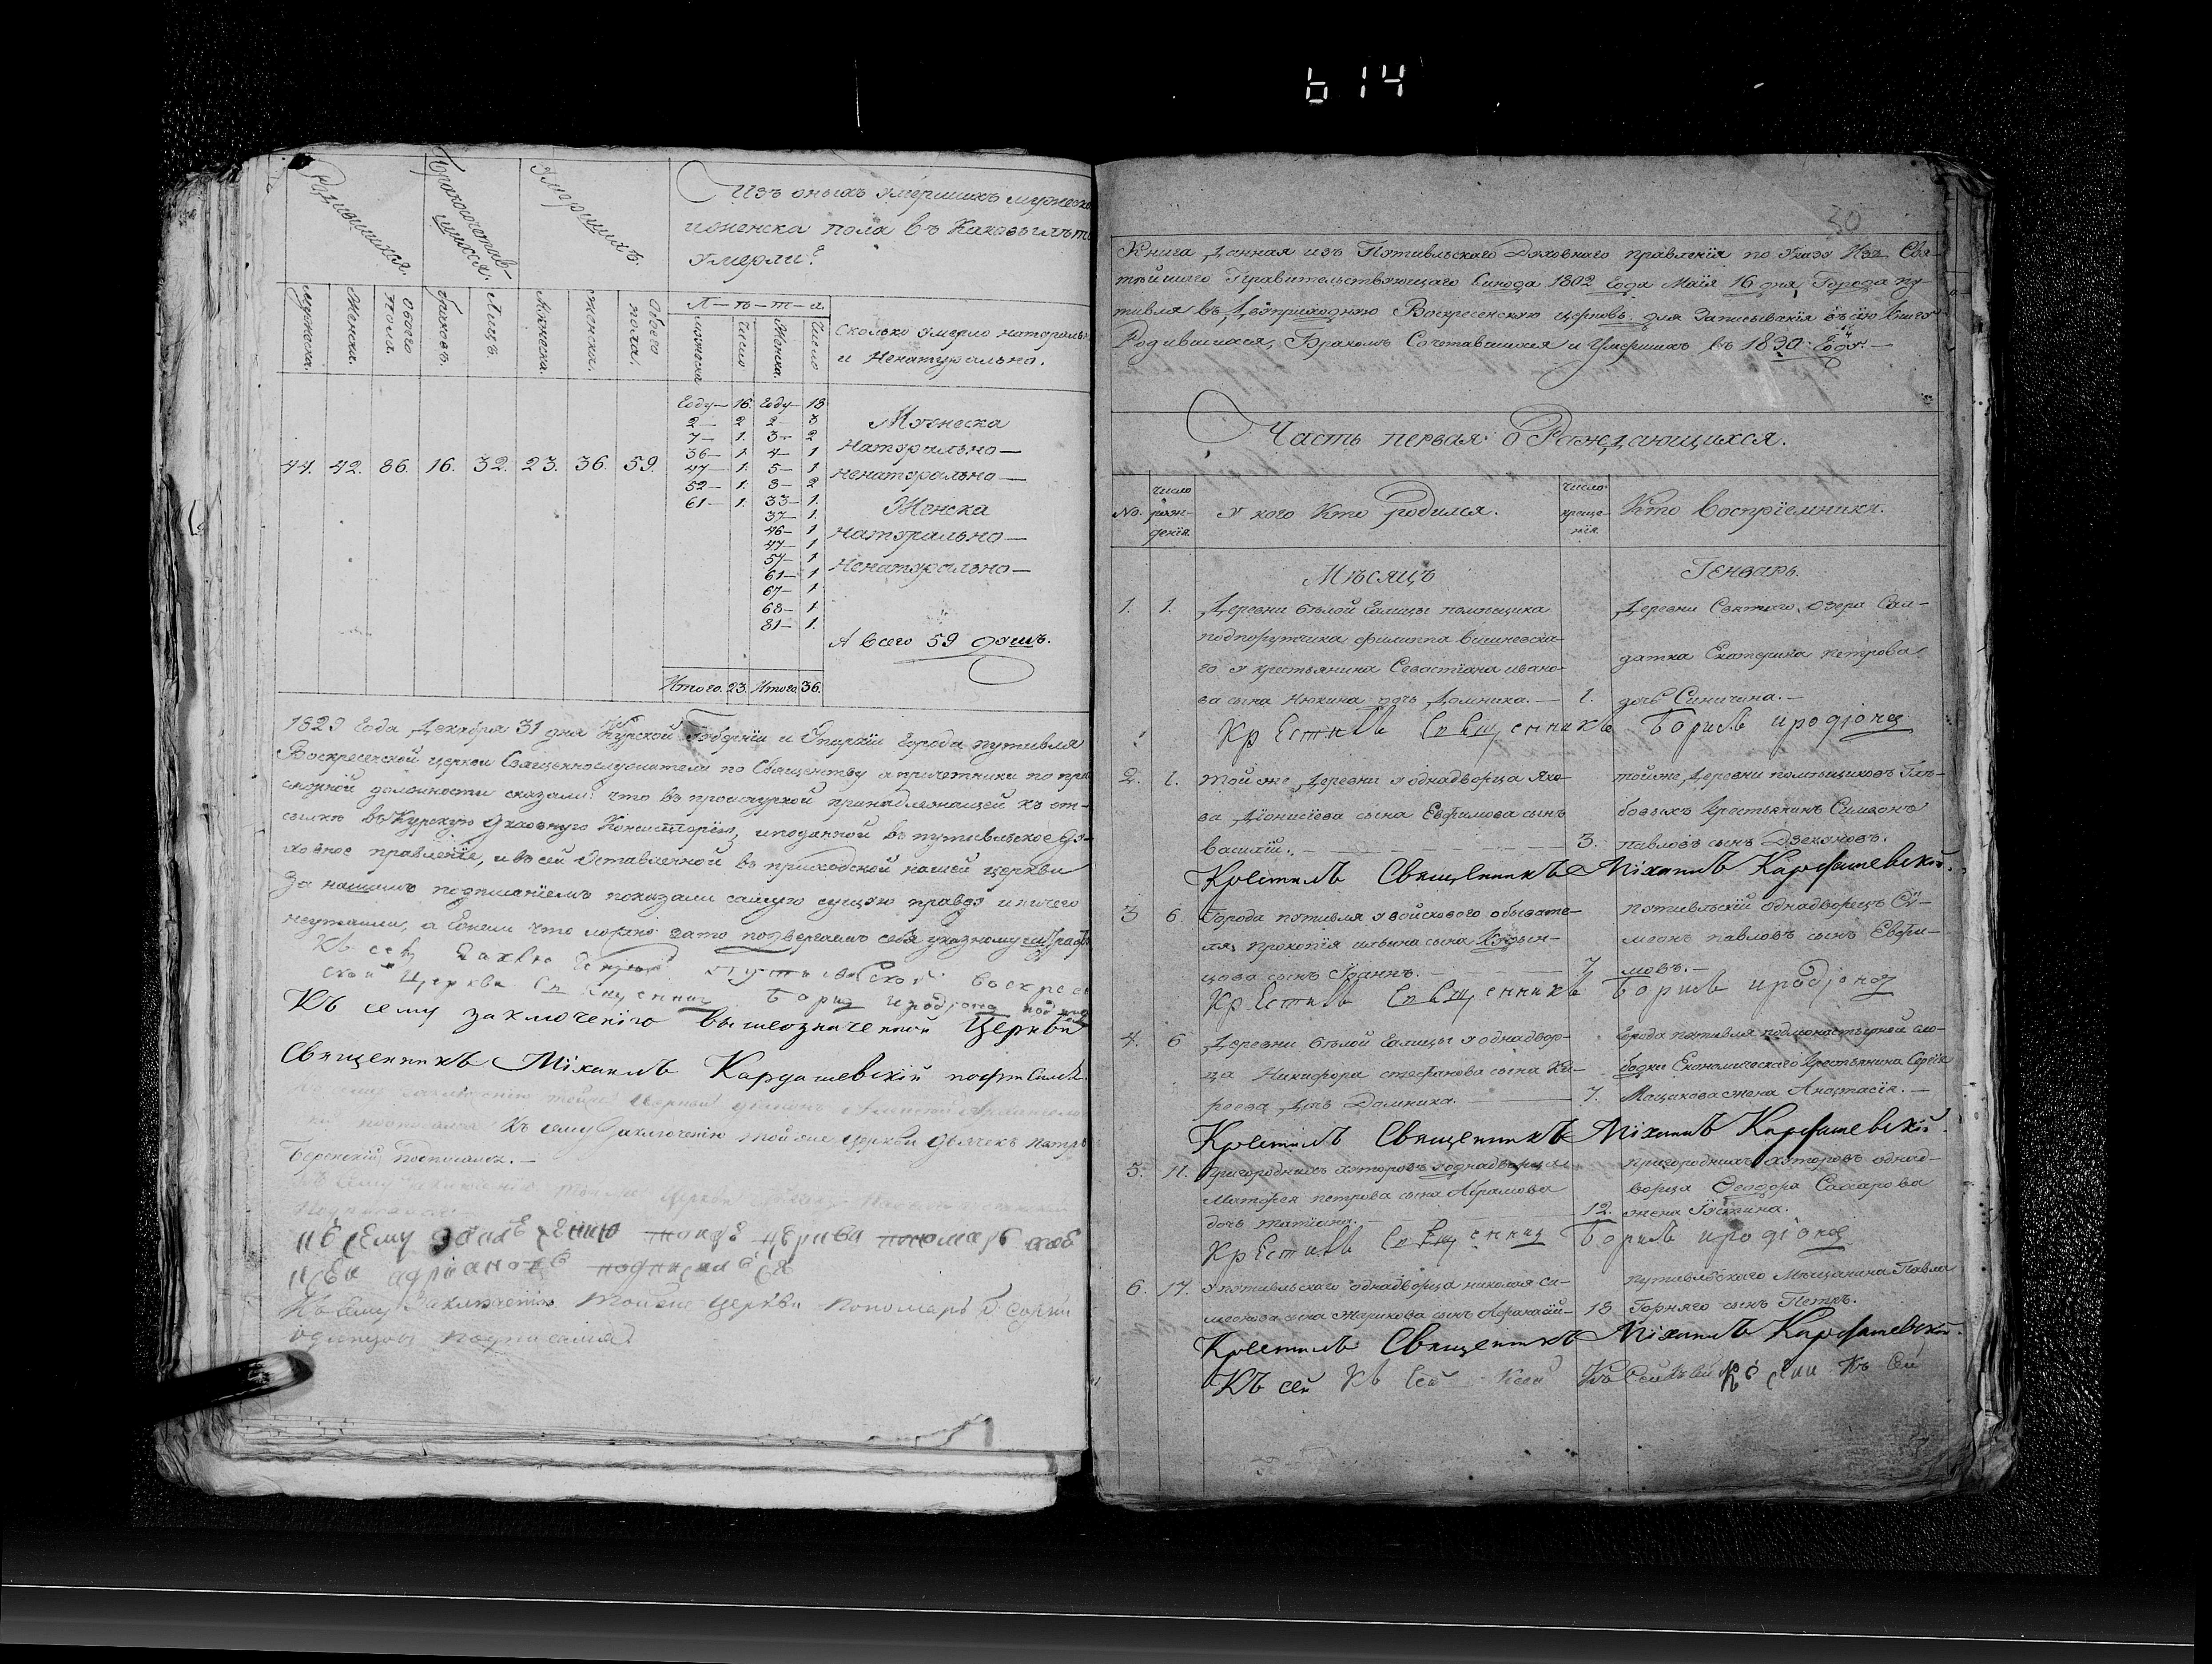 614
Родившихся.
Бракосочетав-
шихся.
Умершихъ.
Изъ оныхъ умершихъ мужеска
иженска пола въ Каковы лѣта
Умерли?
мужеска.
Женска.
Обоего
пола.
браковъ.
Лицъ.
Мужеска.
Женска.
Обоего
пола.
Л-ѣ-т-а.
мужеска
Число
Женска.
Число
Сколько умерло натураль
и Ненатурально.
Году— 16. Году— 18
2— 2 2— 3
7— 1. 3— 2
36— 1. 4— 1
47— 1. 5— 1
52— 1. 8— 2
61— 1. 33— 1.
37— 1.
46— 1
47— 1
57— 1
61— 1
67— 1
68— 1
81— 1.
44. 42. 86. 16. 32. 23. 36. 59.
Мужеска
Натурально—
ненатурально—
Женска
натурально—
Ненатурально—
А всего 59 душъ.
Итого. 23. Итого. 36.
1829 Года Декабря 31 дня Курской Губерніи и Епархіи города путивля
Воскресенской церкви Священнослужители по Священству а причетники по при
сяжной должности сказали: что въ прошнурной принадлежащей къ от-
сылкѣ въ Курскую Духовную Консисторію, иподанной въ путивльское Ду-
ховное правленіе, ивъ сей Оставленной въ приходской нашей церкви
За нашимъ подписаніемъ показали самую сущую правду иничего
неутаили, а Ежели что ложно зато подвергаемъ себя указному
Воскресен
ской Церкви Священникъ Борис
Къ сему заключенію Вышеозначенной Церкви
Священникъ Михаилъ Кардашевскій подписался.
Къ сему заключенію той же церкви дьячекъ петръ
подписался.—
Къ сему заключенію той же церкви пономарь
адріановъ подписался
Къ сему Заключенію Тойже Церкви Пономарь
подписался
30
Книга Данная изъ Путивльскаго Духовнаго правленія по указу Изъ Свя-
тѣйшаго Правительствующаго Синода 1802 Года Маія 16 дня, Города пу
тивля въ Двуприходную Воскресенскую церковь для Записыванія въ сію Книгу
Родившихся, Бракомъ Сочетавшихся и Умершихъ въ 1830: Году.—
Часть первая о Раждающихся.
No.
число
рож-
денія.
У кого Кто родился.
число
креще-
нія.
Кто воспріемники.
Мѣсяцъ
Генварь.
1. 1. Деревни бѣлой Галицы помѣщика
подпорутчика филиппа вишневска-
го у крестьянина Севастіана ивано-
ва сына Нюкина дочь Домника.— 1.
Деревни Святаго Озера Сал-
датка Екатерина петрова
дочь Синичина.—
Крестилъ Священникъ Борисъ иродіонов
2. 1. тойже Деревни у однадворца Яко-
ва Діонисіева сына Евфимова сынъ
василій.— 3.
тойже Деревни помѣщиковъ Глѣ-
бовыхъ Крестьянинъ Симеонъ
павловъ сынъ Дзекуновъ.
Крестилъ Священникъ Михаилъ Кардашевскій.
3 6. Города путивля у войсковаго обывате-
ля прокопія ильина сына
цова сынъ Іоаннъ.— 7
путивльскій однадворецъ Си-
меонъ павловъ сынъ Евфи-
мовъ.—
Крестилъ Священникъ Борисъ иродіонов
4. 6 Деревни бѣлой Галицы у однадвор-
ца Никифора стефанова сына Ки-
реева Дочь Домника.— 7.
Города путивля подмонастырной сло-
бодки Економическаго Крестьянина Сергія
Мацакова жена Анастасія.—
Крестилъ Священникъ Михаилъ Кардашевскій.
5. 11. Пригородныхъ хуторовъ у однадворца
Матфея петрова сына Абрамова
дочь татіана.— 12.
пригородныхъ хуторовъ однад-
ворца Феодора Сахарова
жена Іустина.
Крестилъ Священник Борисъ иродіонов
6. 17. У путивльскаго однадворца николая си-
меонова сына Жарикова сынъ Афанасій— 18
путивльскаго Мѣщанина Павла
Горняго сынъ Петръ.
Крестилъ Священникъ Михаилъ Кардашевскій.
Къ сей Къ Сей Ксей Къ Сей Къ сей Къ Сей